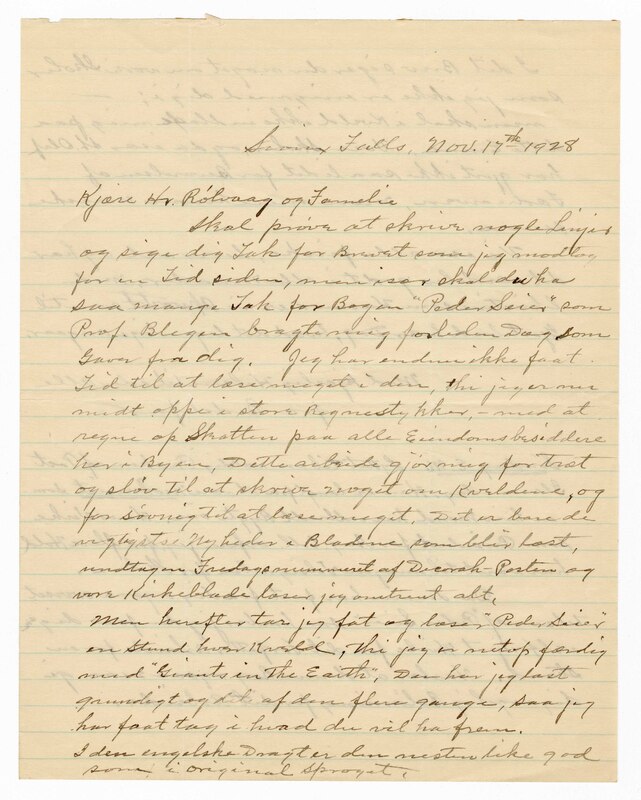 Sioux Falls, Nov. 17th 1928
Kjære Hr. Rölvaag og Familie
Skal prøve at skrive nogle Linjer
og sige dig Tak for Brevet som jeg modtog
for en Tid siden, men især skal du ha
saa mange Tak for Bogen "Peder Seier" som
Prof. Blegen bragte mig forleden Dag som
Gave fra dig. Jeg har endnu ikke faat
Tid til at læse meget i den, thi jeg er nu
midt oppe i store Regnestykker, - med at
regne op Skatten paa alle Eiendomsbesiddere
her i Byen, Dette arbeide gjør mig for træt
og sløv til at skrive noget om Kveldene, og
for søvnig til at læse meget. Det er bare de
vigtigste Nyheder i Bladene som blir læst,
undtagen Fredagsnummeret af Decorah-Posten og
vore Kirkeblade læser jeg omtrent alt.
Men herefter tar jeg fat og læser "Peder Seier"
en Stund hver Kveld, thi jeg er netop færdig
med "Giants in the Earth". Den har jeg læst
grundigt og del af den flere gange, saa jeg
har faat tag i hvad du vil ha frem.
I den engelske Dragt er den nesten like god
som i Original Sproget.